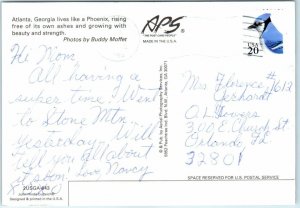 Atlanta, Georgia lives like a Phoenix, rising
free of its own ashes and growing with
beauty and strength.
Photos by Buddy Moffet
APS
MADE IN THE U.S.A.
USA
20
Hi Mom,
All having a
super time. Went
to Stone Mtn.
Yesterday. Will
tell you all about
it soon. Love Nancy
XOXO
Mrs Florence
#612
O.L. Towers
340 E. Church St
Orlando, Fla
32801
2USGA-443
Printed in the U.S.A.
SPACE RESERVED FOR U.S. POSTAL SERVICE